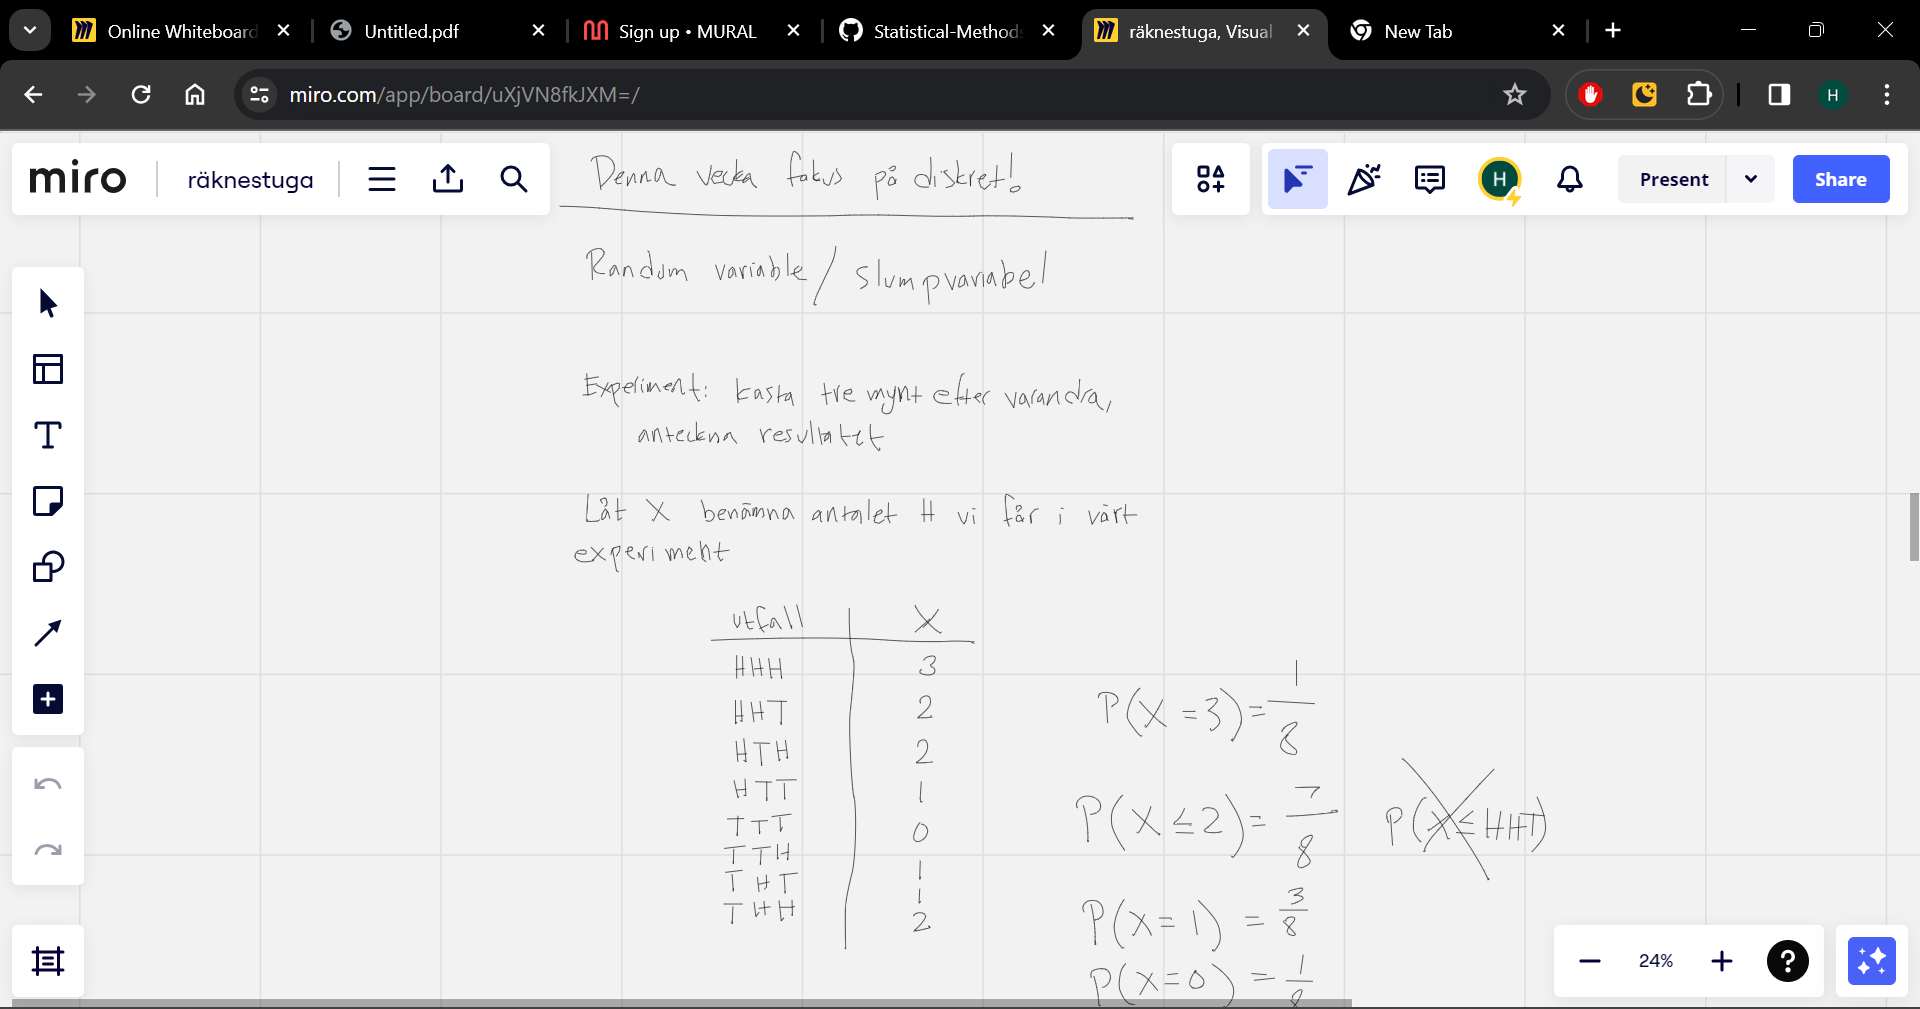 Online Whiteboard
Untitled.pdf
Sign up • MURAL
Statistical-Methods
räknestuga, Visual
New Tab
miro.com/app/board/uXjVN8fkJXM=/
H
miro
räknestuga
H
Present
Share
Denna vecka fokus på diskret!
Random variable / slumpvariabel
Experiment: kasta tre mynt efter varandra,
anteckna resultatet
Låt X benämna antalet H vi får i vårt
experiment
utfall X
HHH 3
HHT 2
HTH 2
HTT 1
TTT 0
TTH 1
THT 1
THH 2
P(X=3)=1/8
P(X≤2)=7/8 P(X≤HHT)
P(X=1)=3/8
P(X=0)=1/8
24%
?